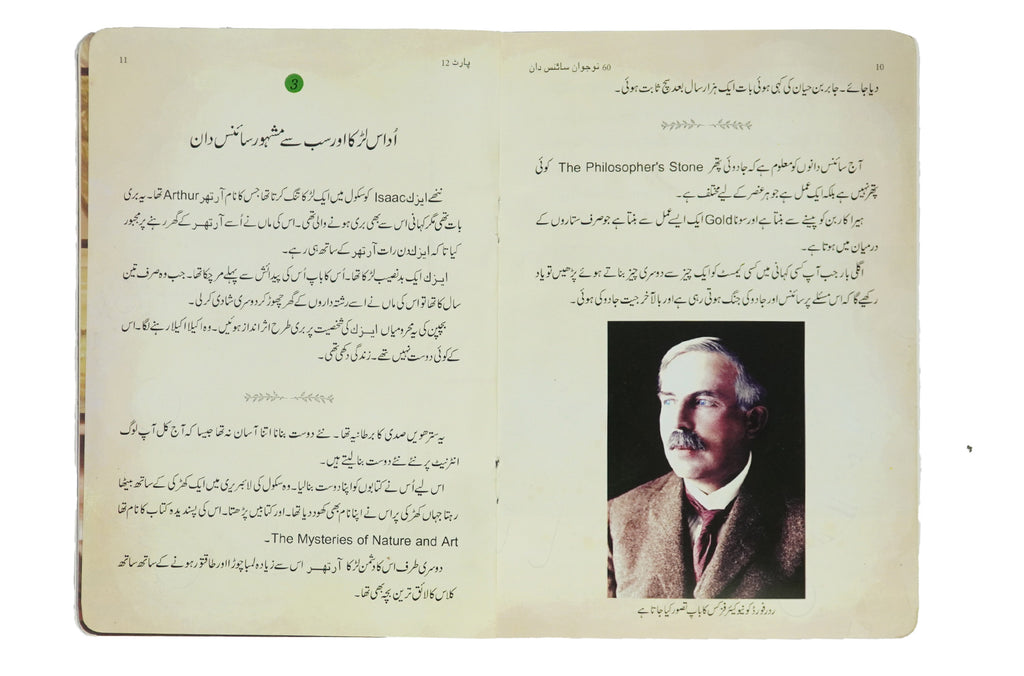 10
60 نوجوان سائنس دان
دیا جائے۔ جابر بن حیان کی کہی ہوئی بات ایک ہزار سال بعد سچ ثابت ہوئی۔
آج سائنس دانوں کو معلوم ہے کہ جادوئی پتھر The Philosopher's Stone کوئی
پتھر نہیں ہے بلکہ ایک عمل ہے جو ہر عنصر کے لیے مختلف ہے۔
ہیرا کاربن کو پیسنے سے بنتا ہے اور سونا Gold ایک ایسے عمل سے بنتا ہے جو صرف ستاروں کے
درمیان میں ہوتا ہے۔
اگلی بار جب آپ کسی کہانی میں کسی کیمسٹ کو ایک چیز سے دوسری چیز بناتے ہوئے پڑھیں تو یاد
رکھیے گا کہ اس مسئلے پر سائنس اور جادو کی جنگ ہوتی رہی ہے اور بالآخر جیت جادو کی ہوئی۔
ردرفورڈ کو نیوکلیئر فزکس کا باپ تصور کیا جاتا ہے
پارٹ 12
11
3
اُداس لڑکا اور سب سے مشہور سائنس دان
ننھے ایزک Isaac کو سکول میں ایک لڑکا تنگ کرتا تھا جس کا نام آرتھر Arthur تھا۔ یہ بری
بات تھی مگر کہانی اس سے بھی بری ہونے والی تھی۔ اس کی ماں نے اُسے آرتھر کے گھر رہنے پر مجبور
کیا تاکہ ایزک دن رات آرتھر کے ساتھ ہی رہے۔
ایزک ایک بدنصیب لڑکا تھا۔ اُس کا باپ اُس کی پیدائش سے پہلے مر چکا تھا۔ جب وہ صرف تین
سال کا تھا تو اس کی ماں نے اسے رشتہ داروں کے گھر چھوڑ کر دوسری شادی کر لی۔
بچپن کی یہ محرومیاں ایزک کی شخصیت پر بری طرح اثر انداز ہوئیں۔ وہ اکیلا اکیلا رہنے لگا۔ اس
کے کوئی دوست نہیں تھے۔ زندگی دکھی تھی۔
یہ سترھویں صدی کا برطانیہ تھا۔ نئے دوست بنانا اتنا آسان نہ تھا جیسا کہ آج کل آپ لوگ
انٹرنیٹ پر نئے نئے دوست بنا لیتے ہیں۔
اس لیے اُس نے کتابوں کو اپنا دوست بنا لیا۔ وہ سکول کی لائبریری میں ایک کھڑکی کے ساتھ بیٹھا
رہتا جہاں کھڑکی پر اس نے اپنا نام بھی کھود دیا تھا۔ اور کتابیں پڑھتا۔ اس کی پسندیدہ کتاب کا نام تھا
The Mysteries of Nature and Art۔
دوسری طرف اس کا دشمن لڑکا آرتھر اس سے زیادہ لمبا چوڑا اور طاقتور ہونے کے ساتھ ساتھ
کلاس کا لائق ترین بچہ بھی تھا۔